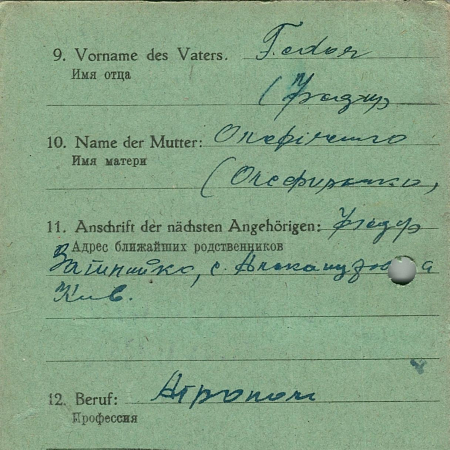 9. Vorname des Vaters. Fedor
Имя отца
(Федир
10. Name der Mutter: Олефіренко
Имя матери
(Олефиренко,
11. Anschrift der nächsten Angehörigen: Федор
Адрес ближайших родственников
с.
Кив.
12. Beruf: Агроном
Профессия